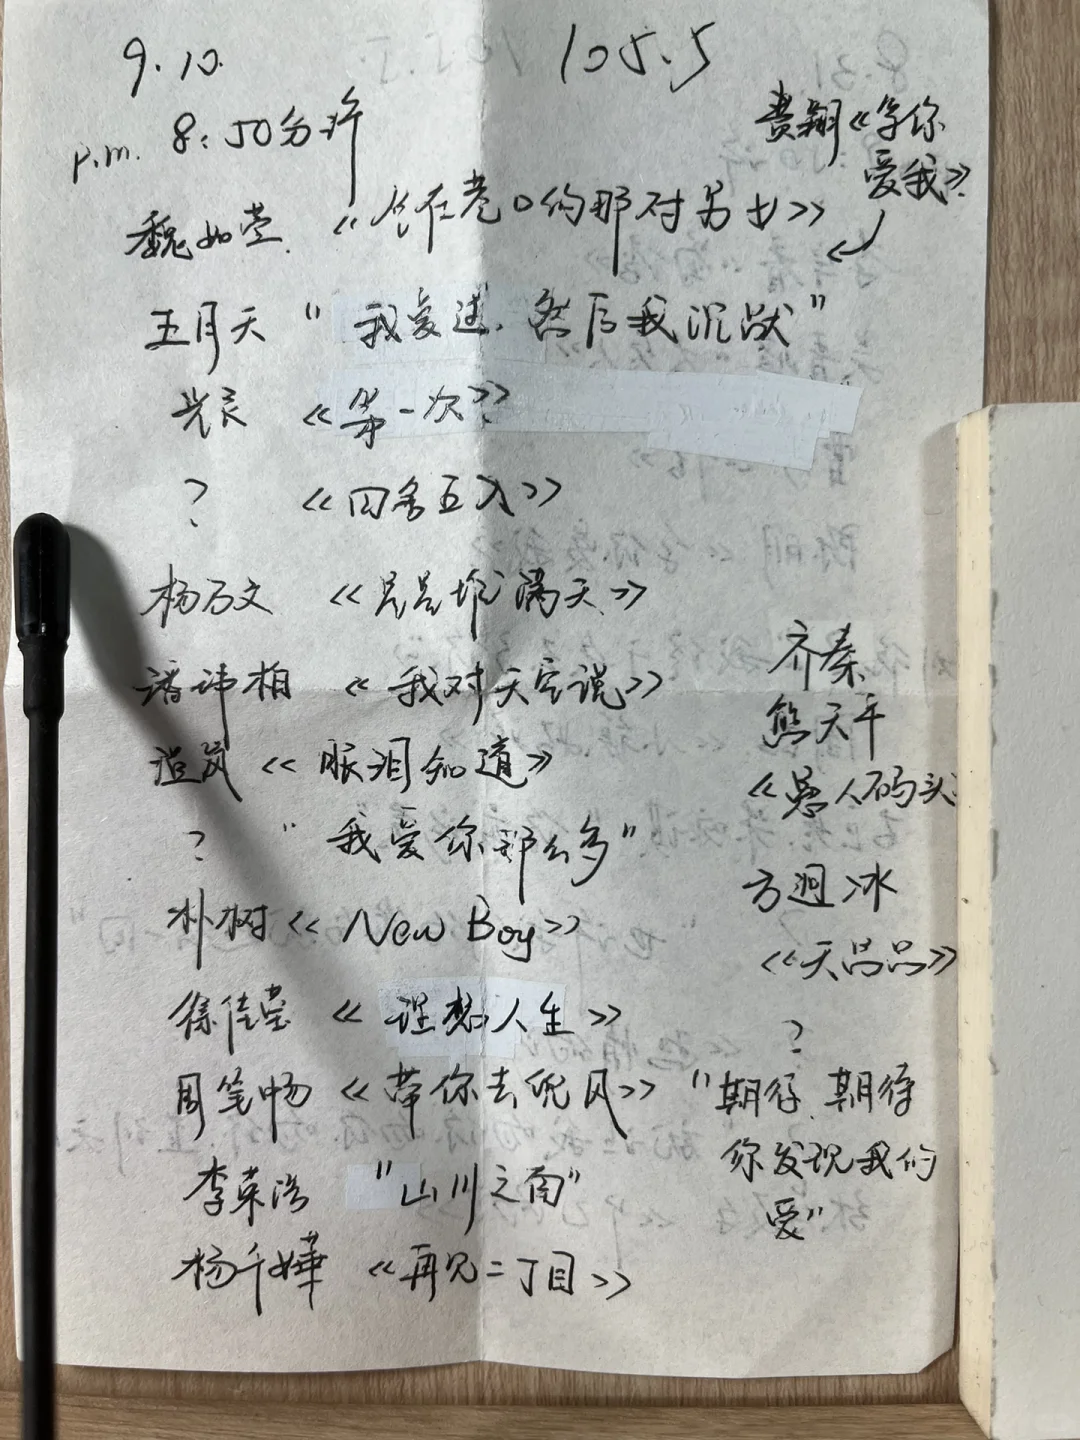 9.10. 105.5
p.m. 8:50分许
费翔《等你
爱我》
魏如萱 《住在巷口的那对男女》
五月天 "我爱过，然后我沉默"
光良 《第一次》
? 《四舍五入》
杨乃文 《星星堆满天》
潘玮柏 《我对天空说》
《眼泪知道》
? "我爱你那么多"
朴树《New Boy》
徐佳莹 《理想人生》
周笔畅 《带你去兜风》
李荣浩 "山川之南"
杨千嬅 《再见二丁目》
齐秦
熊天平
《愚人码头》
方迥冰
《天晶晶》
?
"期待，期待
你发现我的
爱"